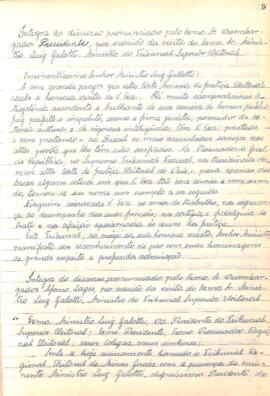 9
Íntegra do discurso pronunciado pelo Exmo. Sr. Desembar-
gador Presidente, por ocasião da visita do Exmo. Sr. Minis-
tro Luiz Galotti, Ministro do Tribunal Superior Eleitoral.
Eminentíssimo Senhor Ministro Luiz Galotti:
É com grande prazer que esta Corte Mineira de Justiça Eleitoral
recebe a honrosa visita de V. Exa. Há muito acompanhamos a
trajetória ascendente e brilhante de sua carreira de homem público
e prestando, ao Brasil os mais assinalados serviços nos
altos postos que lhe têm sido confiados. Na Procuradoria Geral
da República, no Supremo Tribunal Federal, na Presidência da
mais alta Corte de Justiça Eleitoral do País - para apenas des-
tacar alguns setores em que V. Exa.
Ninguém excederá V. Exa. no amor do trabalho, na seguran-
ça do desempenho das suas funções, na
trato e na afeição
Este Tribunal, ao
manifesta seu reconhecimento de par com suas homenagens
de grande respeito e profunda admiração."
Íntegra do discurso pronunciado pelo Exmo. Sr. Desembar-
gador Afonso Lages, por ocasião da visita do Exmo. Sr. Minis-
tro Luiz Galotti, Ministro do Tribunal Superior Eleitoral.
"Exmo. Ministro Luiz Galotti, DD. Presidente do Tribunal
Superior Eleitoral; Exmo. Presidente, Exmo. Procurador Regio-
nal Eleitoral, caros colegas, meus senhores:
Sente-se hoje sumamente honrado o Tribunal Re-
gional Eleitoral de Minas Gerais com a presença do emi-
nente Ministro Luiz Galotti, digníssimo Presidente do